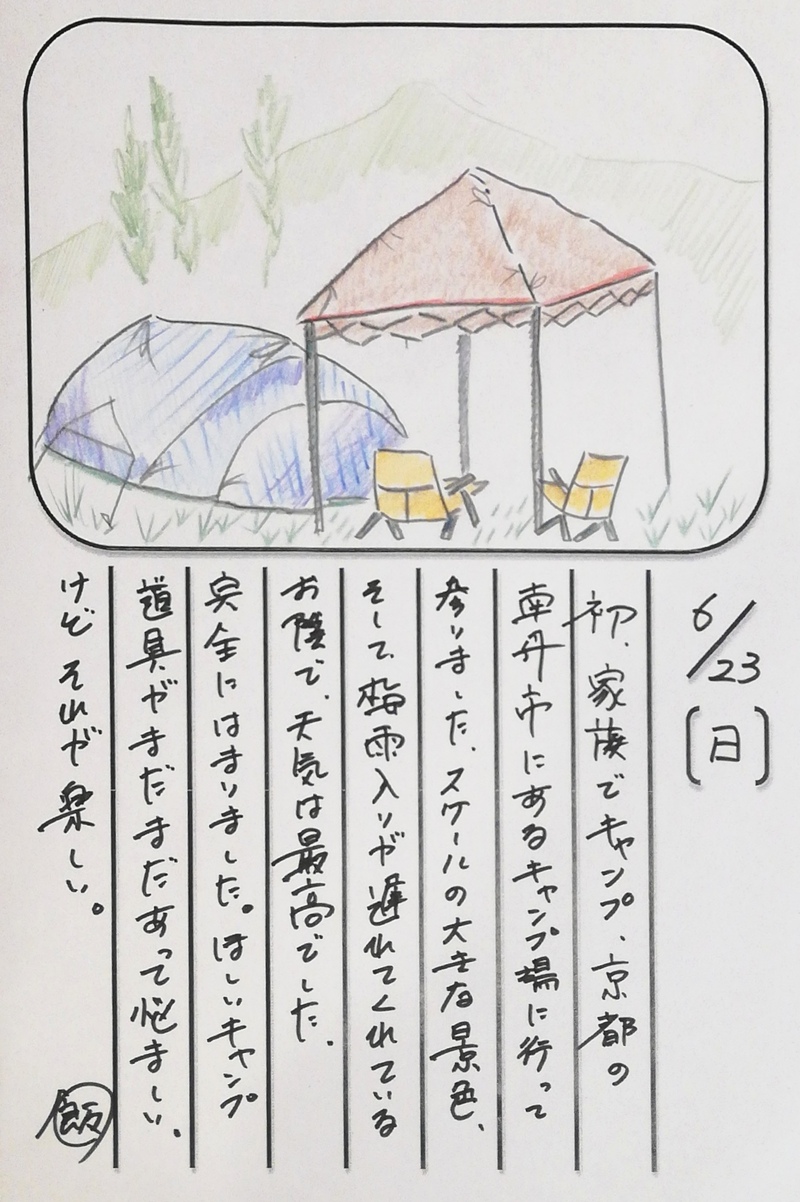 6/23
[日]
初、家族でキャンプ、京都の
南丹市にあるキャンプ場に行って
参りました、スケールの大きな景色、
そして、梅雨入りが遅れてくれている
お陰で、天気は最高でした、
完全にはまりました。ほしいキャンプ
道具がまだまだあって悩ましい、
けど それが楽しい。
飯